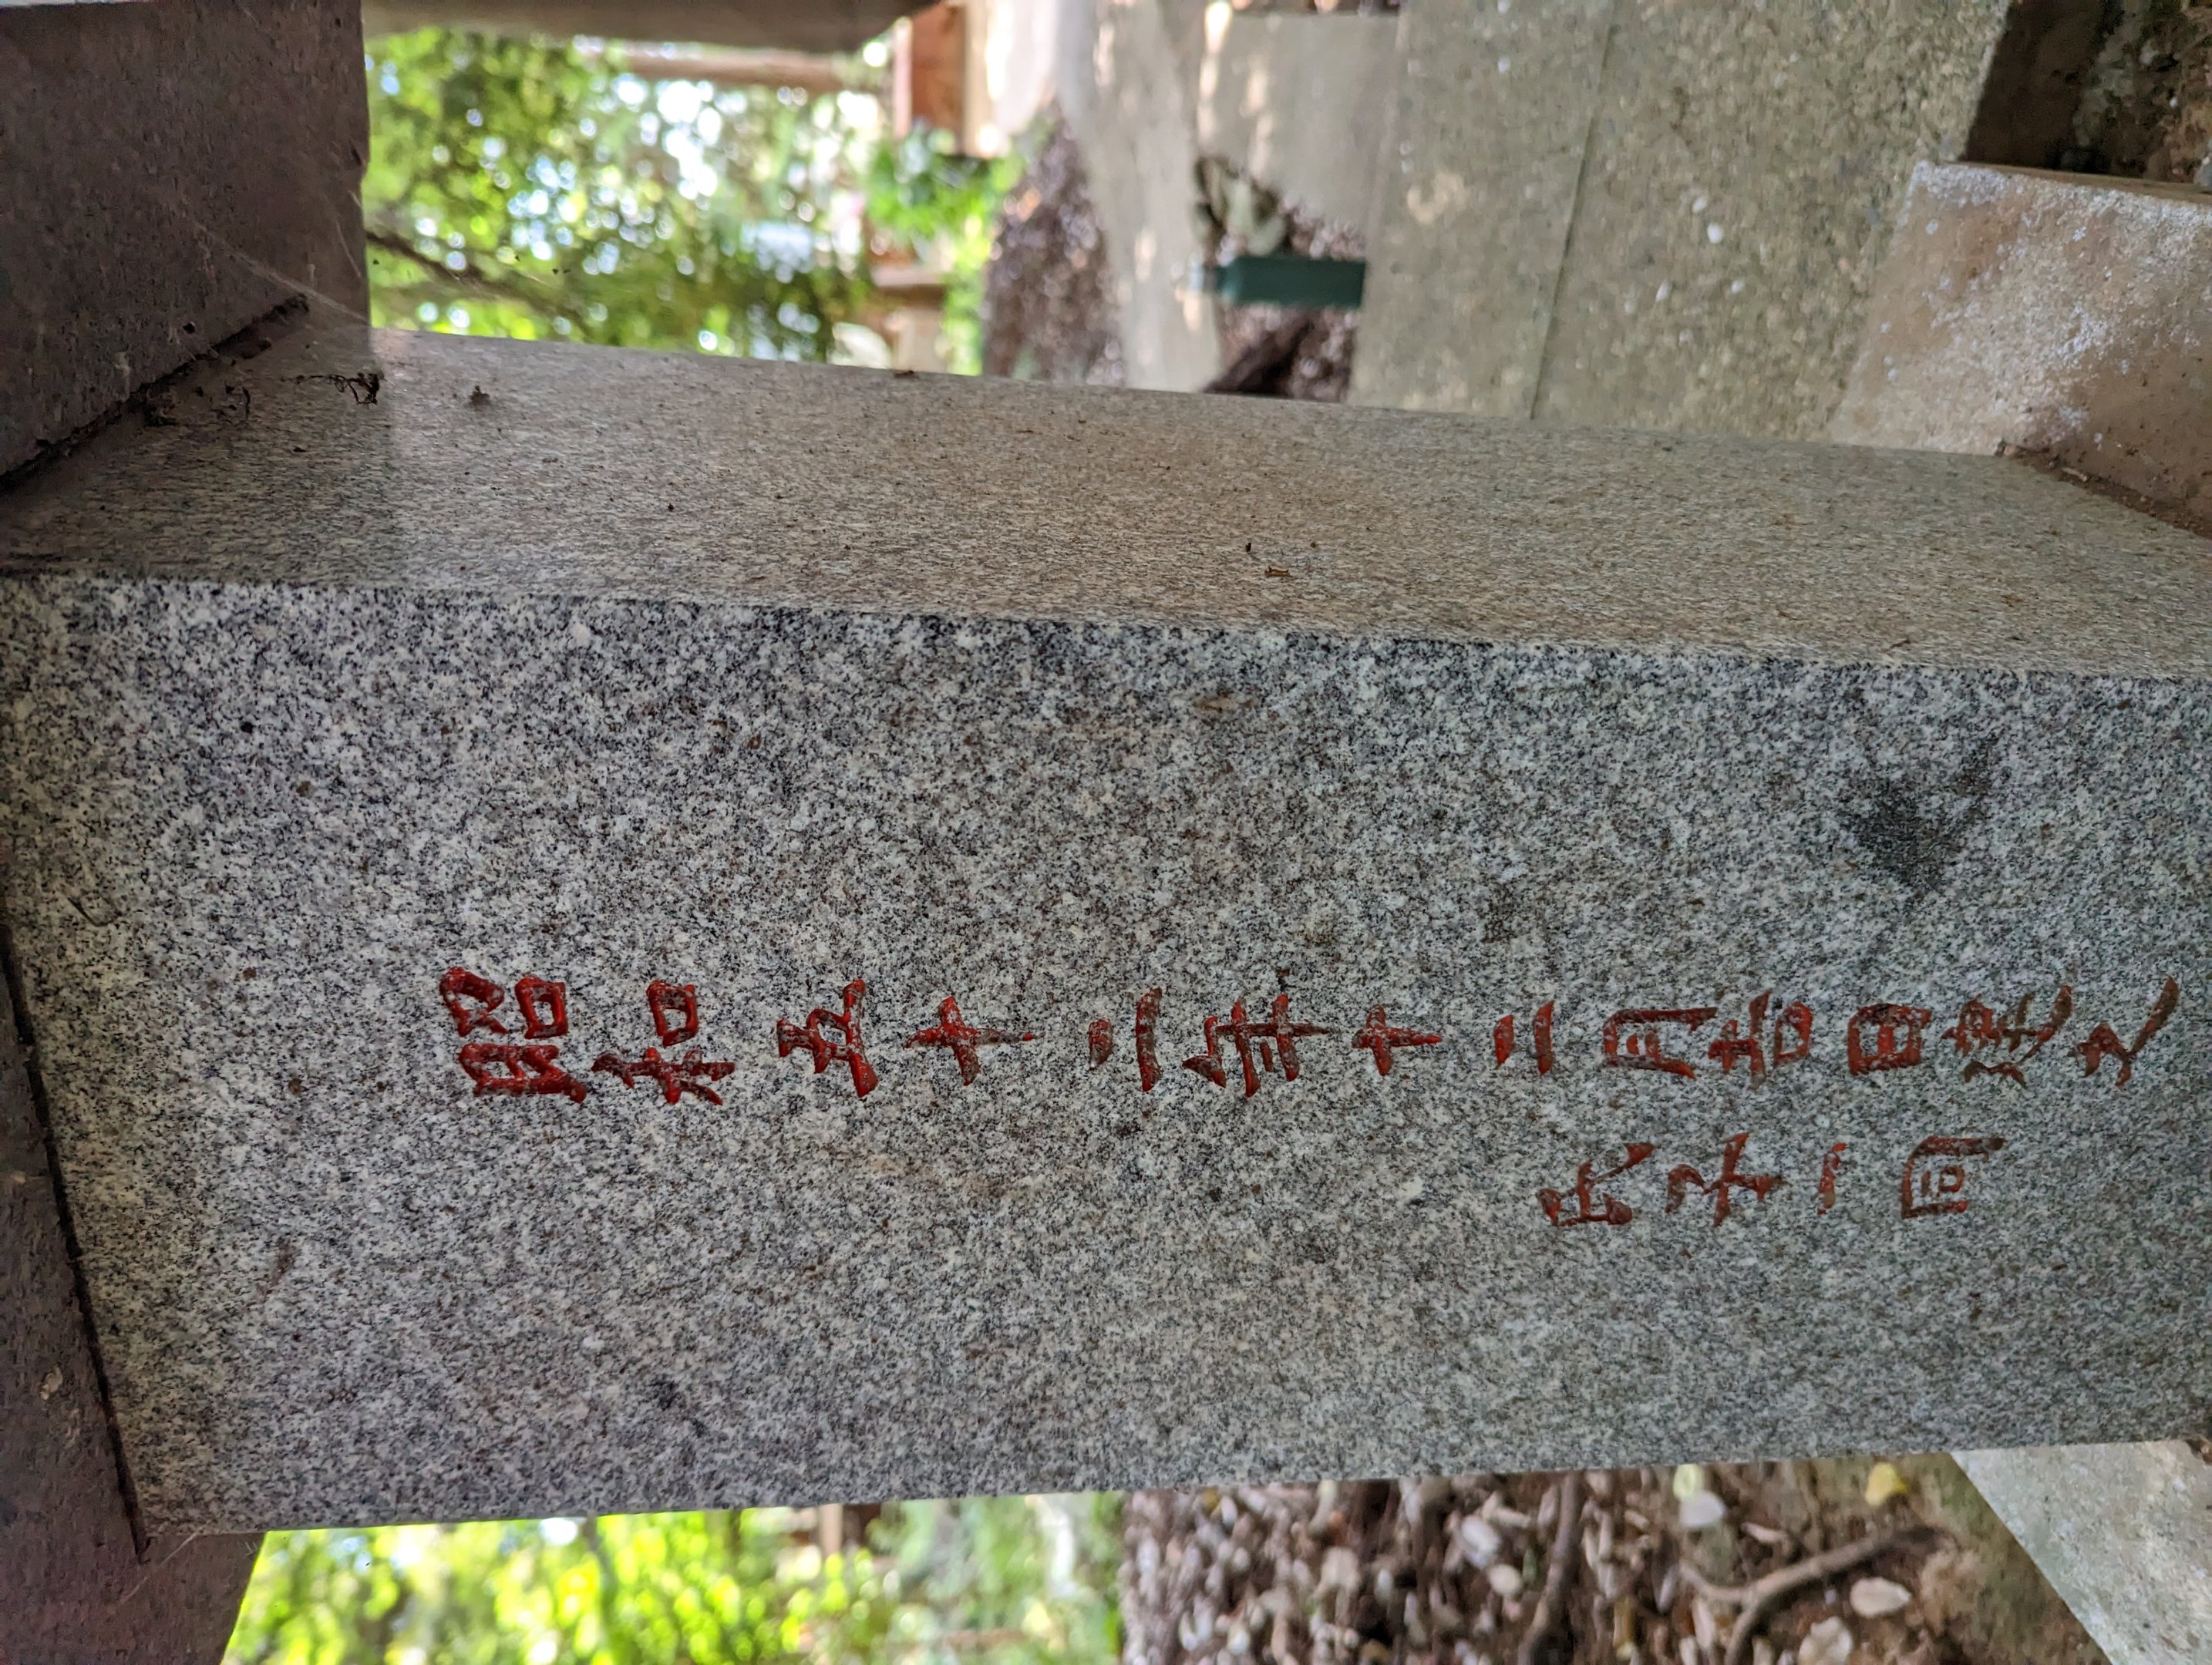 昭和五十二年十二月吉日建之
氏子一同